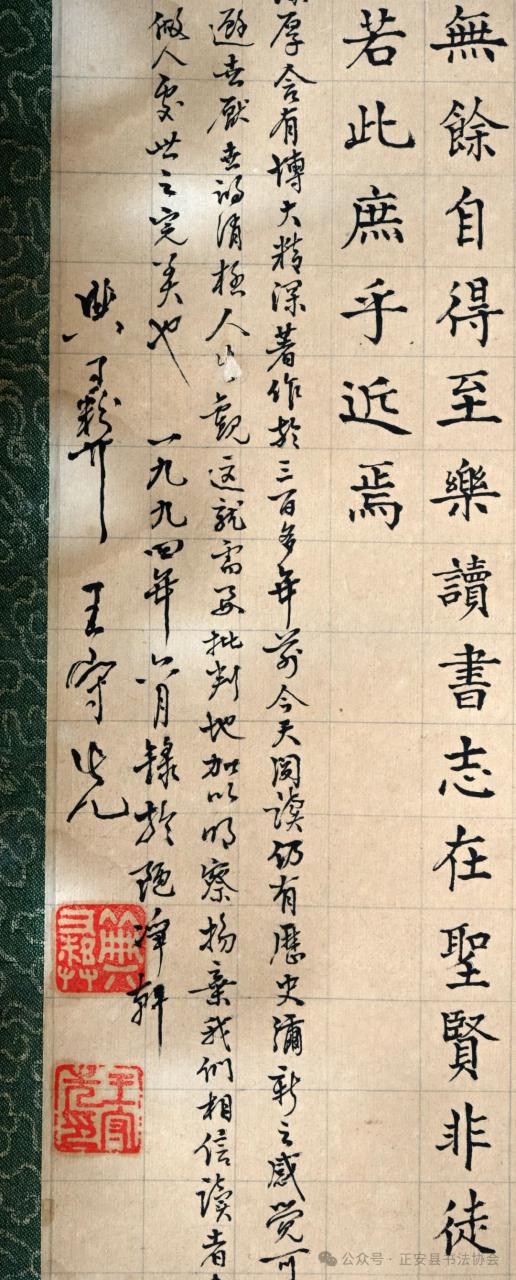 無餘自得至樂讀書志在聖賢非徒
若此庶乎近焉
厚含有博大精深著作於三百多年前今天閱讀仍有歷史彌新之感覺可
避世厭世的消極人生觀這就需要批判地加以明察揚棄我們相信讀者
做人處世之完美也 一九九四年六月錄於陋净軒
王守先
王守先印
公众号·正安县书法协会